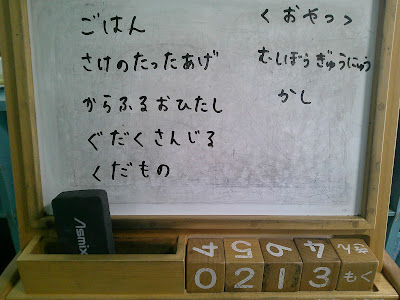 ごはん
さけのたったあげ
からふるおひたし
ぐだくさんじる
くだもの
<おやつ>
むしぼうぎゅうにゅう
かし
Asmix
4 5 6 4 きん
0 2 1 3 もく